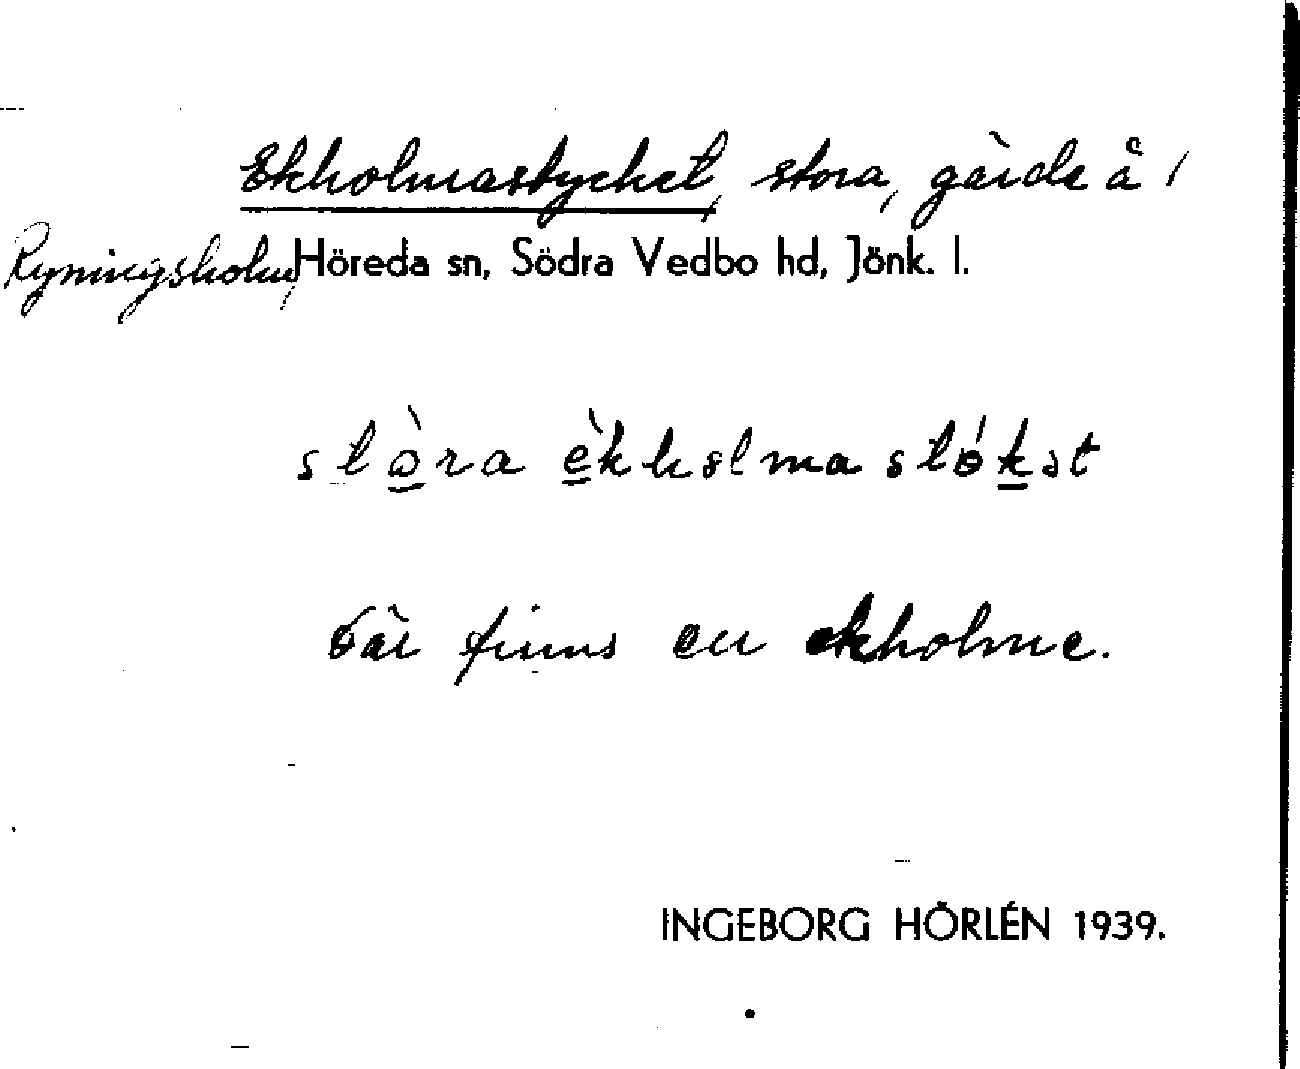 Ekholmastycket, stora, gärde å /
Ryningsholm, Höreda sn, Södra Vedbo hd, Jönk. l.
stò̱ra è̱kholmastóḵət
Där finns en ekholme.
INGEBORG HÖRLÉN 1939.